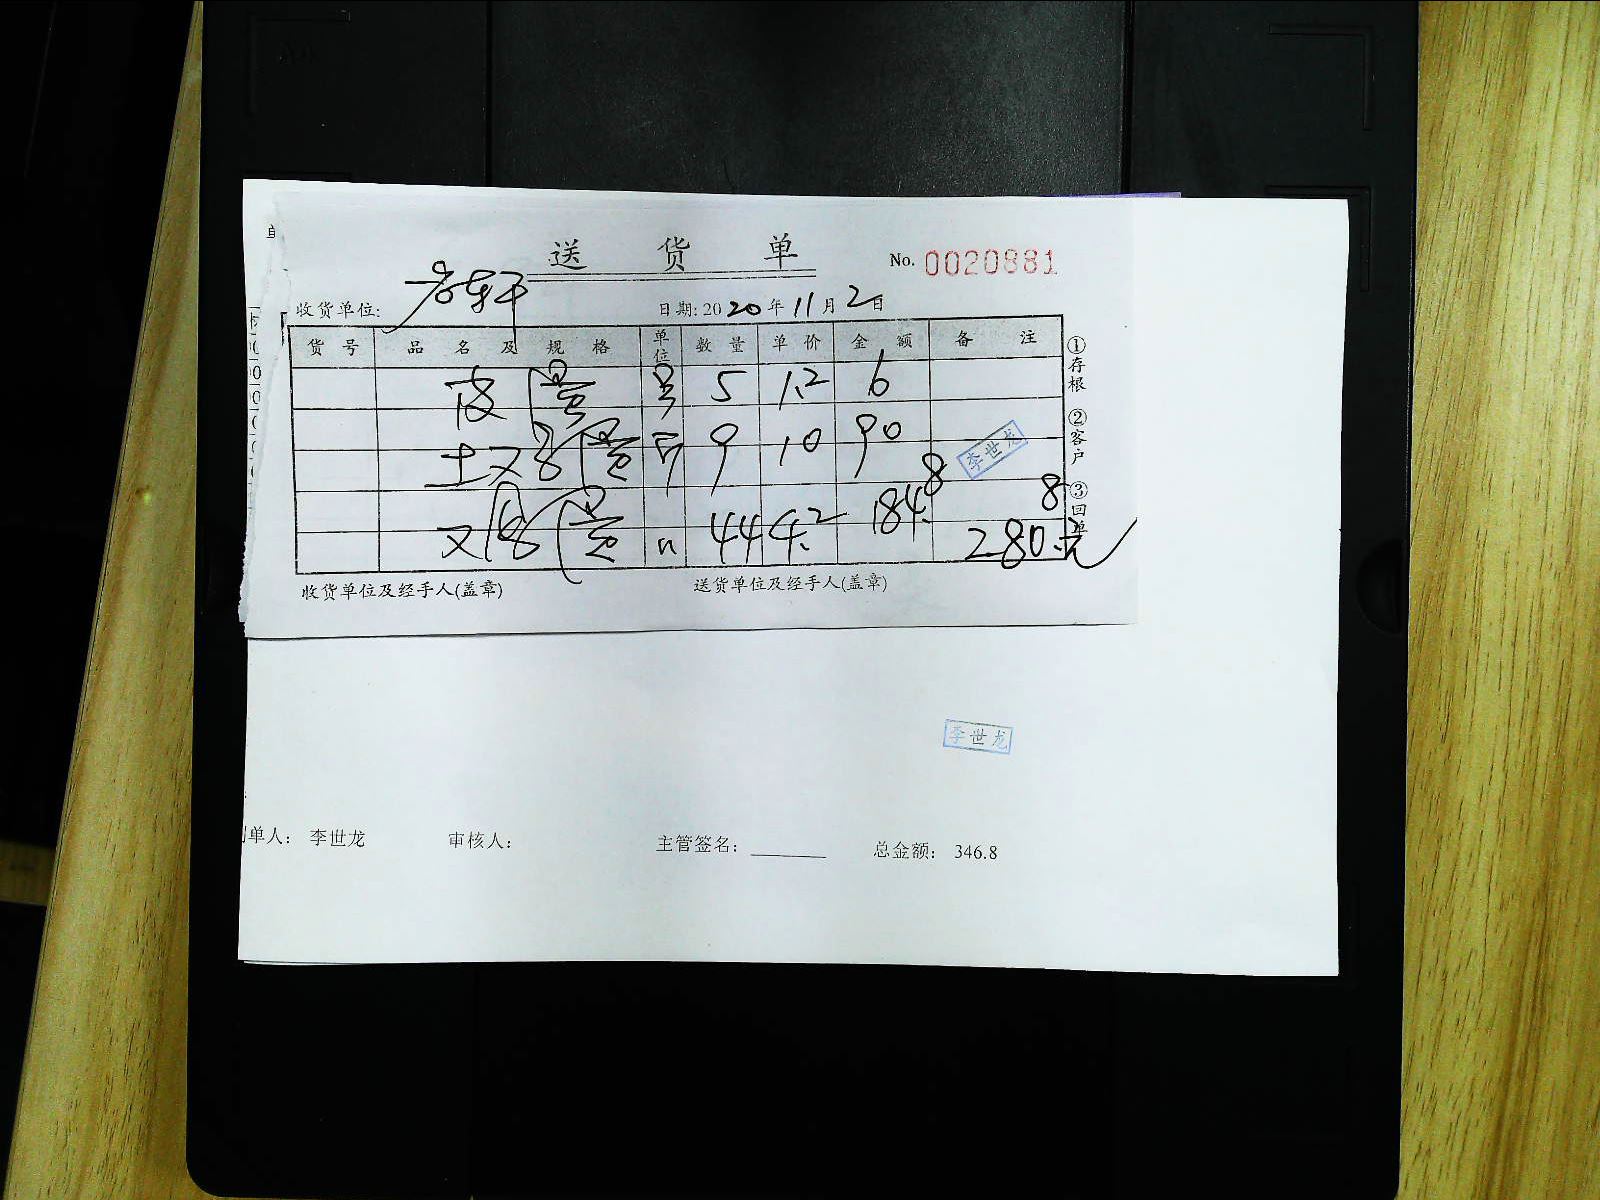 送 货 单
No. 0020881
收货单位:
日期: 2020 年 11 月 2 日
货 号 品 名 及 规 格 单位 数 量 单 价 金 额 备 注
皮蛋 5 1.2 6
土又鸟蛋 9 10 90
又鸟蛋 44 4.2 184.8
8
280.元
李世龙
①存根 ②客户 ③回单
收货单位及经手人(盖章) 送货单位及经手人(盖章)
李世龙
单人: 李世龙 审核人: 主管签名: 总金额: 346.8